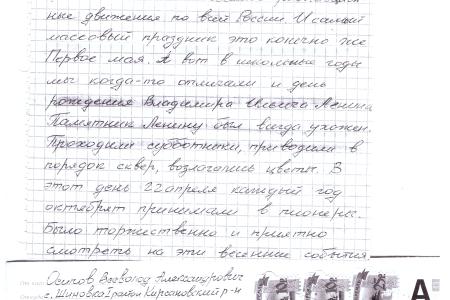 ные движения по всей России. И самый
массовый праздник это конечно же
Первое мая. А вот в школьные годы
мы когда-то отмечали и день
рождения Владимира Ильича Ленина.
Памятник Ленину был всегда ухожен.
Проходили субботники, приводили в
порядок сквер, возлагались цветы. В
этот день 22 апреля каждый год
октябрят принимали в пионеры.
Было торжественно и приятно
смотреть на эти весенние события.
Осипов Всеволод Александрович
А